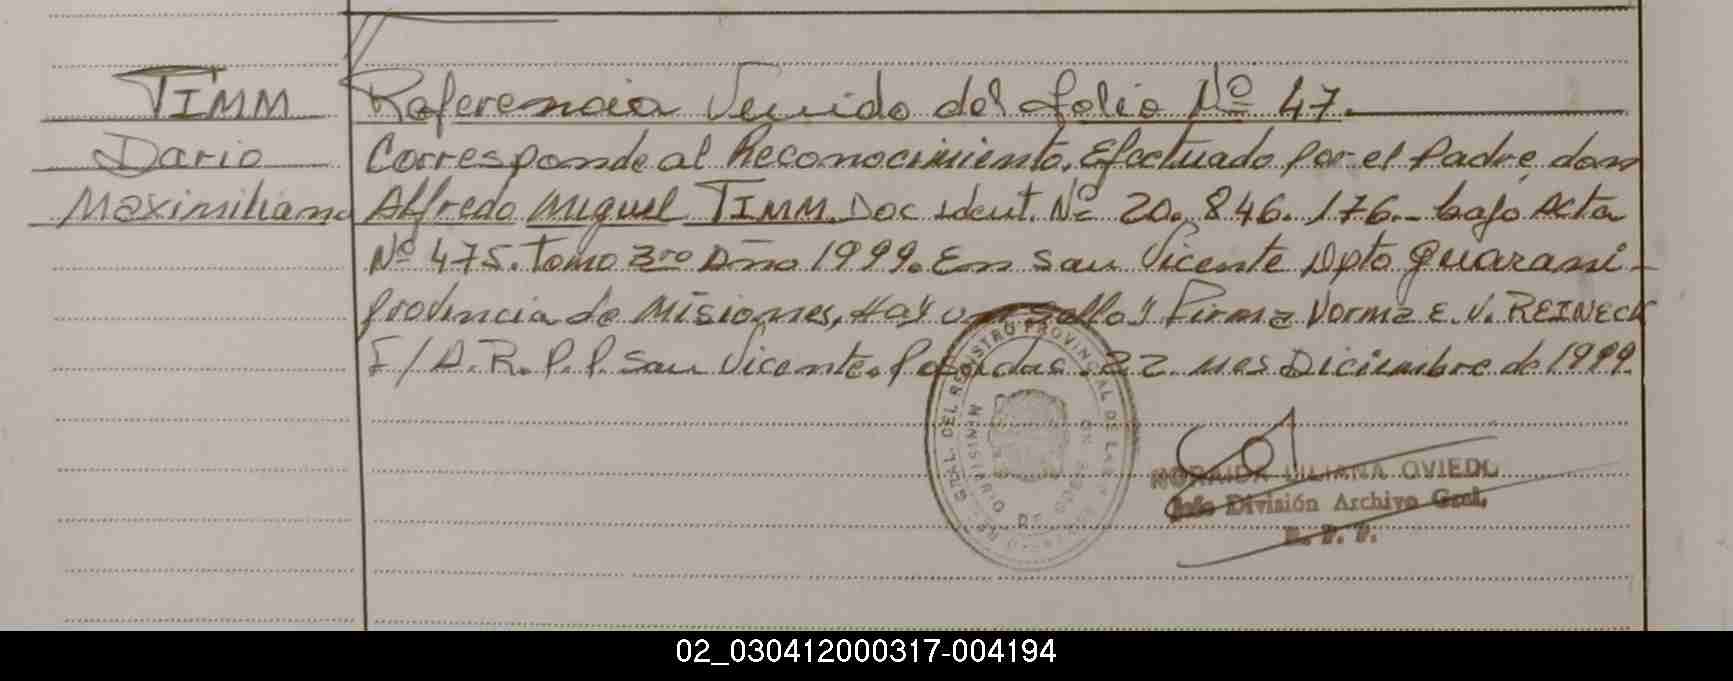 TIMM
Dario
Maximiliano
Referencia Venido del folio Nº 47.
Corresponde al Reconocimiento. Efectuado por el Padre, don
Alfredo Miguel TIMM. Doc ident. Nº 20.846.176.- bajo Acta
Nº 475. Tomo 3ro Año 1999. En San Vicente Dpto Guarani-
provincia de Misiones, Hay un sello y Firma Norma E. V. REINECK
E/A.R.P.P. San Vicente. Posadas. 22 mes Diciembre de 1999.
GRAL. DEL REGISTRO PROVINCIAL DE LAS
MINISTERIO DE GOBIERNO
NORAIDA LILIANA OVIEDO
Jefe División Archivo Gral.
R. P. P.
02_030412000317-004194